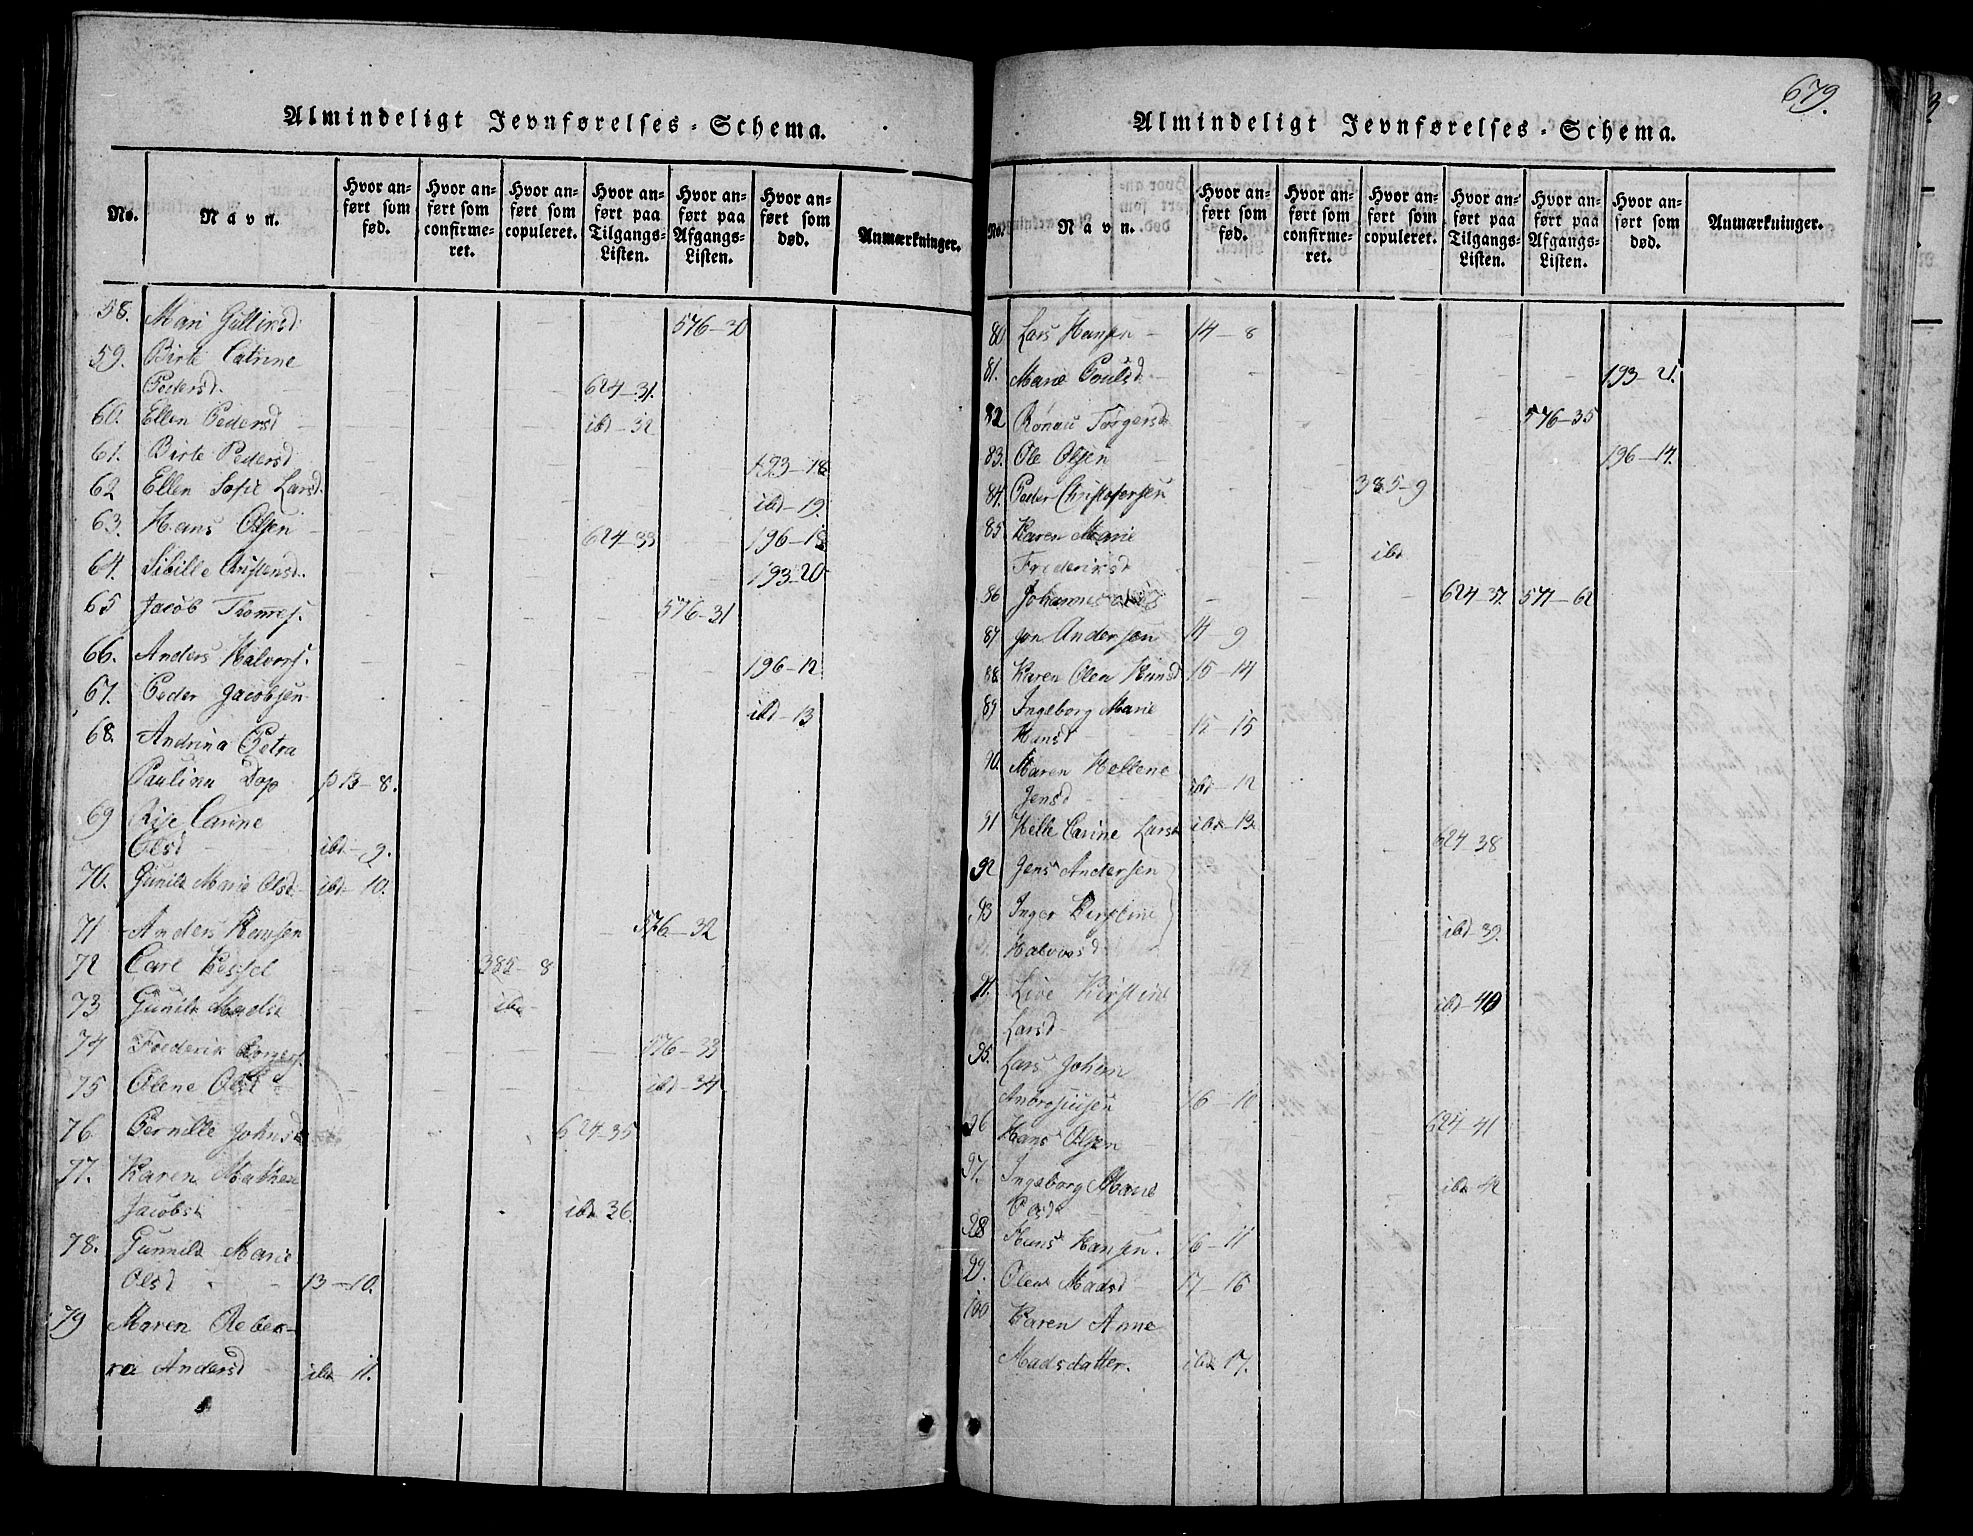 Almindeligt Jevnførelses-Schema.
No. Navn. Hvor anført som fød. Hvor anført som confirmeret. Hvor anført som copuleret. Hvor anført paa Tilgangs-Listen. Hvor anført paa Afgangs-Listen. Hvor anført som død. Anmærkninger.
58. Mari Gulliksd. 576-30
59. Birte Catrine
Pedersd. 624-31.
60. Ellen Pedersd ibd-32
61. Birte Pedersd 193-18
62 Ellen Sofie Larsd. ibd-19.
63. Hans Olsen 624-33 196-18
64. Sibille Christensd. 193-20
65 Jacob Thomes. 576-31
66. Anders Halvors. 196-12
67. Peder Jacobsen ibd-13
68. Andrina Petra
Paulina Dop p13-8.
69 Carine
Olsd ibd-9.
70. Gunild Marie Olsd ibd-10.
71 Anders Hansen 576-32
72 Carl 385-8
73 Gunild Madsd ibd
74 Frederik 576-33
75 Olene Olsd ibd-34
76. Pernille Johnsd 624-35
77. Karen Mathea
Jacobsd ibd 36.
78. Gunnild Marie
Olsd 13-10.
79 Maren Rebec-
ca Andersd ibd-11.
679.
Almindeligt Jevnførelses-Schema.
No. Navn. Hvor anført som fød. Hvor anført som confirmeret. Hvor anført som copuleret. Hvor anført paa Tilgangs-Listen. Hvor anført paa Afgangs-Listen. Hvor anført som død. Anmærkninger.
80. Lars Hansen 14-8
81. Marie Poulsd 193-21.
82 Rönau Torgersd 576-35
83. Ole Olsen 196-14.
84. Peder Christofersen 385-9
85 Karen Marie ibd
Frederiksd
86 Johannes 624-37. 577-62
87 Jon Andersen 14 9
88 Karen Olea 15-14
89 Ingeborg Marie
Hansd 15-15
90. Maren Hellene
Jensd ibd-12
91 Helle Carine Larsd ibd-13 624 38
92 Jens Andersen
93 Inger Kirstine ibd-39.
Halvorsd
Live Kirstine ibd-40
Larsd
95. Lars Johan
Ambrosiusen 16-10
96 Hans Olsen 624 41
97. Ingeborg Marie ibd 42
Olsd
98 Hans Hansen. 16-11
99. Olena Madsd 17-16
100 Karen Anne
Madsdatter. ibd 17.